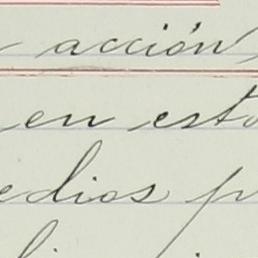 acción
en esto
edios p